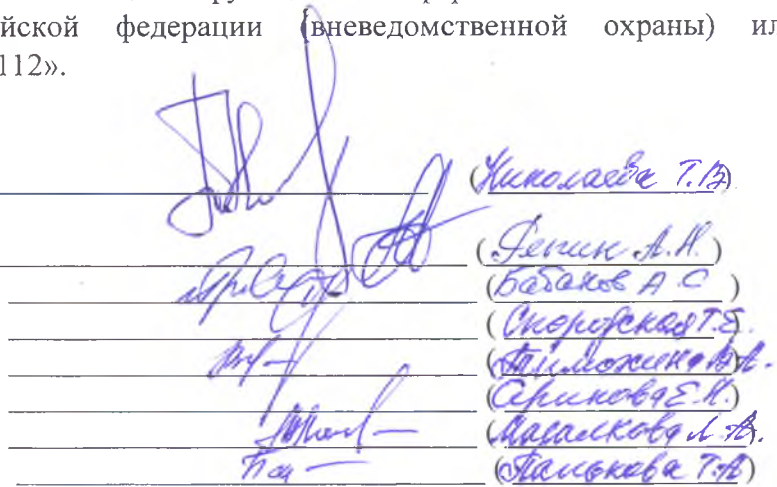 йской федерации (вневедомственной охраны) ил
112».
(Николаева Т.В)
(Легкин А.Н.)
(Бабаков А С)
(Скородская Т.Е.
(Тимохина В.А.
(Аринова Е.Н.)
(Масалкова Л.А.
(Панькова Т.А)